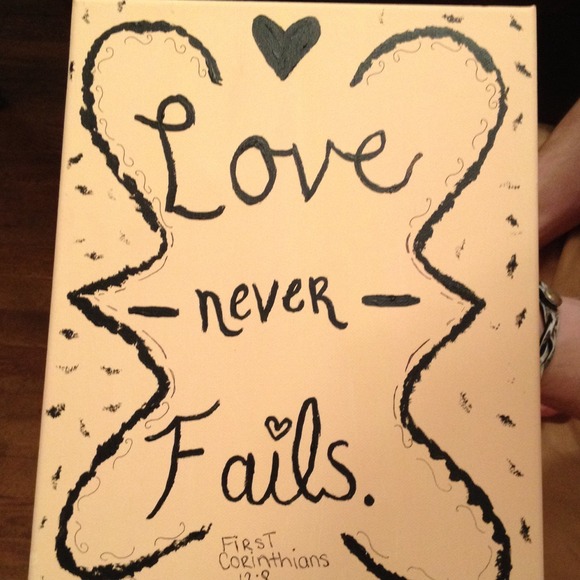 Love
- never -
Fails.
First
Corinthians